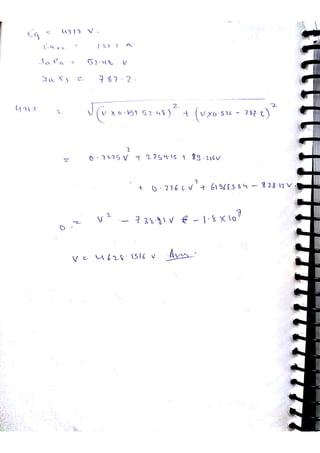 Eg = 4317 V.
= 1311 A
IaRa = 52.48 V
IaXs = 787.2.
4317 = √(V×0.85952.48)² + (V×0.526 - 787.2)²
= 0.7225V² + 2754.15 + 89.216V
+ 0.276 V² + 619683.84 - 828.13V
0 = V² - 738.91V - 1.8×10⁷
V = 4628.1516 V Ans